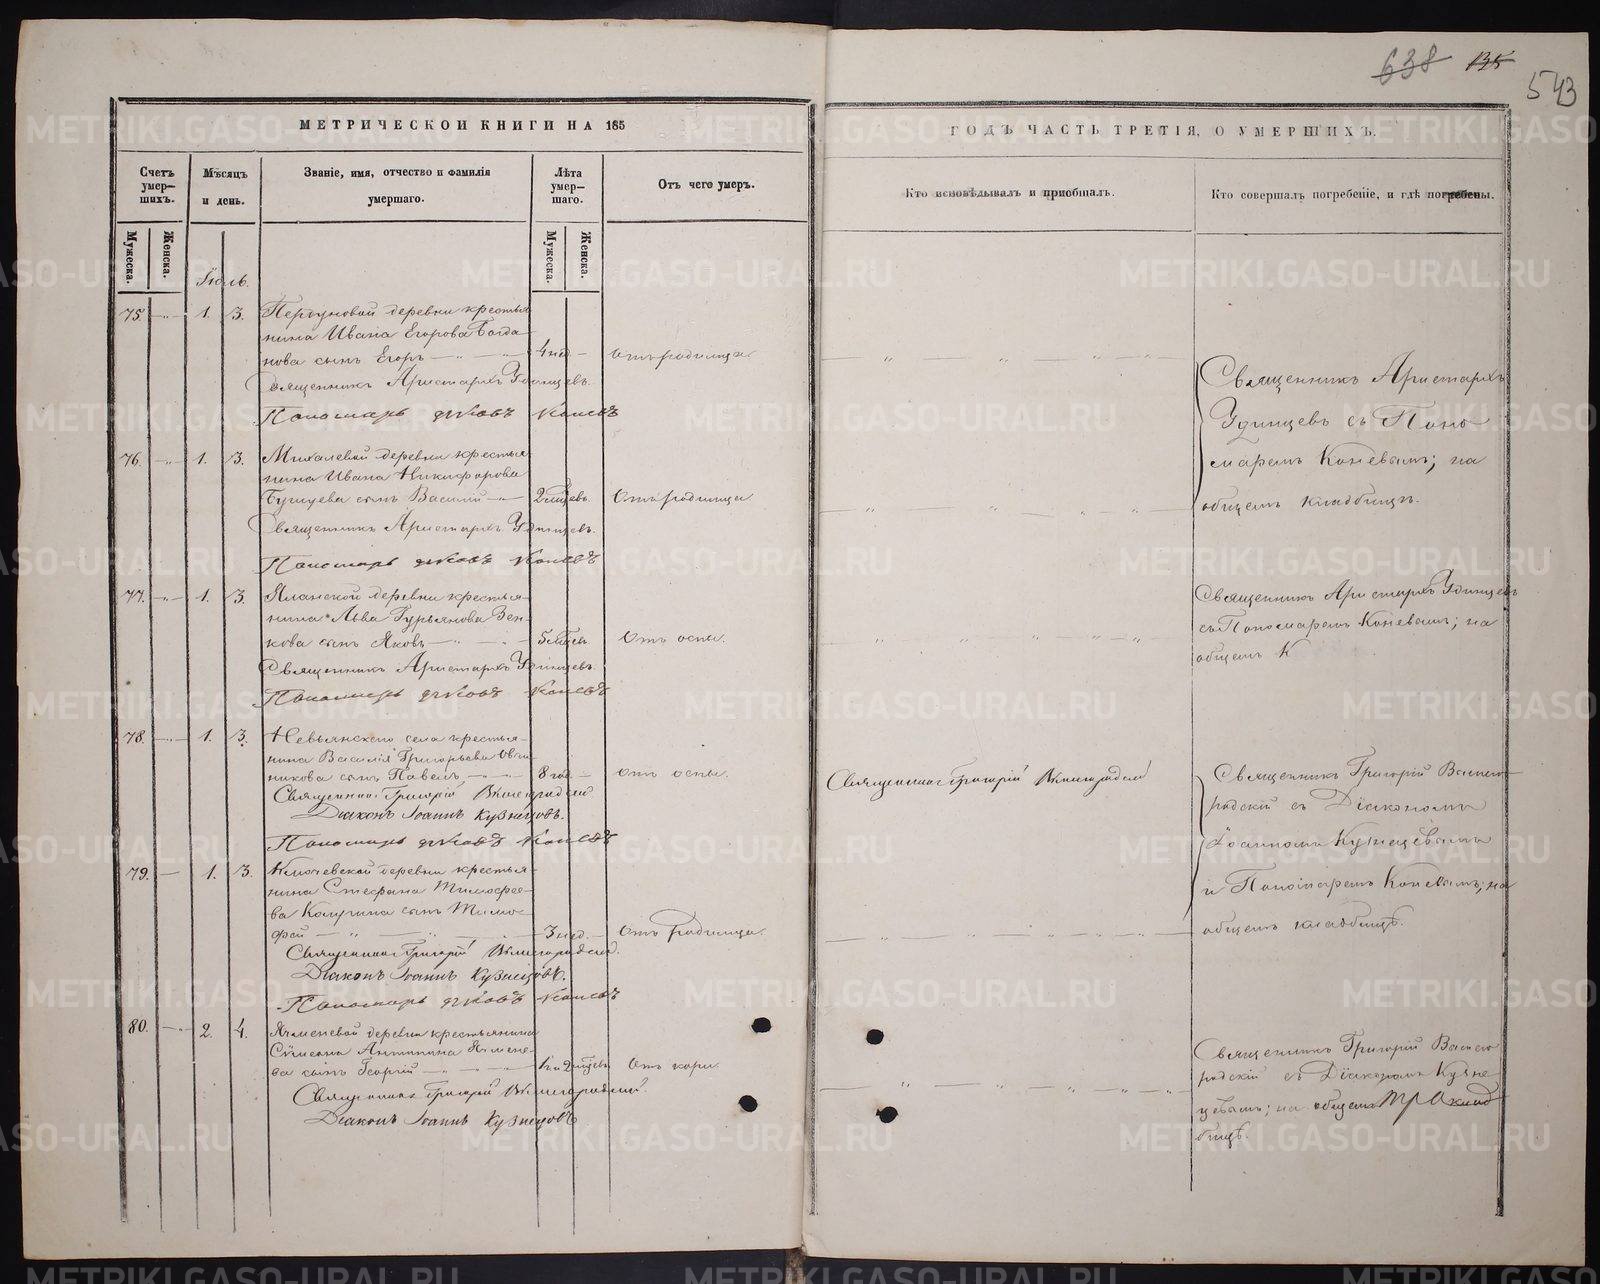 638 135
543
МЕТРИЧЕСКОЙ КНИГИ НА 185
ГОДЪ ЧАСТЬ ТРЕТІЯ, О УМЕРШИХЪ.
Счетъ умер-шихъ.
Мѣсяцъ и день.
Званіе, имя, отчество и фамилія умершаго.
Лѣта умер-шаго.
Отъ чего умеръ.
Кто исповѣдывалъ и пріобщалъ.
Кто совершалъ погребеніе, и гдѣ погребены.
Мужеска. Женска.
Мужеска. Женска.
Іюль.
75. 1. 3. Першуновой деревни крестья
нина Ивана Егорова Богда-
нова сынъ Егоръ 4 нед. Отъ родимца
Священникъ Аристархъ Удинцевъ.
Пономарь Яковъ Коневъ
Священникъ Аристархъ
Удинцевъ съ Поно-
маремъ Коневымъ; на
общемъ кладбищѣ.
76. 1. 3. Михалевой деревни крестья-
нина Ивана Никифорова
сынъ Василій 2 мѣсяцъ. Отъ родимца
Священникъ Аристархъ Удинцевъ.
Пономарь Яковъ Коневъ
77. 1. 3. Яланской деревни крестья-
нина Льва Гурьянова Зен-
кова сынъ Яковъ 5 мѣсяц. Отъ оспы.
Священникъ Аристархъ Удинцевъ.
Пономарь Яковъ Коневъ
Священникъ Аристархъ Удинцевъ
съ Пономаремъ Коневымъ; на
общемъ К
78. 1. 3. Невьянскаго села крестья-
нина Василія Григорьева Овчи-
никова сынъ Павелъ 8 год. Отъ оспы. Священникъ Григорій
Священникъ Григорій
Діаконъ Іоаннъ Кузнецовъ.
Пономарь Яковъ Коневъ
Священникъ Григорій
съ Діакономъ
Іоанномъ Кузнецовымъ
и Пономаремъ Коневымъ; на
общемъ кладбищѣ.
79. 1. 3. Ключевской деревни крестья-
нина Стефана Тимофее-
ва сынъ Тимо-
фей 3 нед. Отъ родимца.
Священникъ Григорій
Діаконъ Іоаннъ Кузнецовъ.
Пономарь Яковъ Коневъ
80. 2. 4. Ячменевой деревни крестьянина
Сѵмеона Антипина Ячмене-
ва сынъ Георгій Отъ кори.
Священникъ Григорій
Діаконъ Іоаннъ Кузнецовъ
Священникъ Григорій
съ Діакономъ Кузне-
цовымъ; на общемъ клад
бищѣ.
METRIKI.GASO-URAL.RU